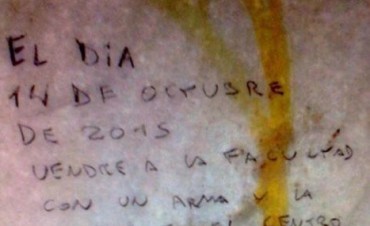 EL DIA
14 DE OCTUBRE
DE 2015
VENDRE A LA FACULTAD
CON UN ARMA Y LA
EL CENTRO